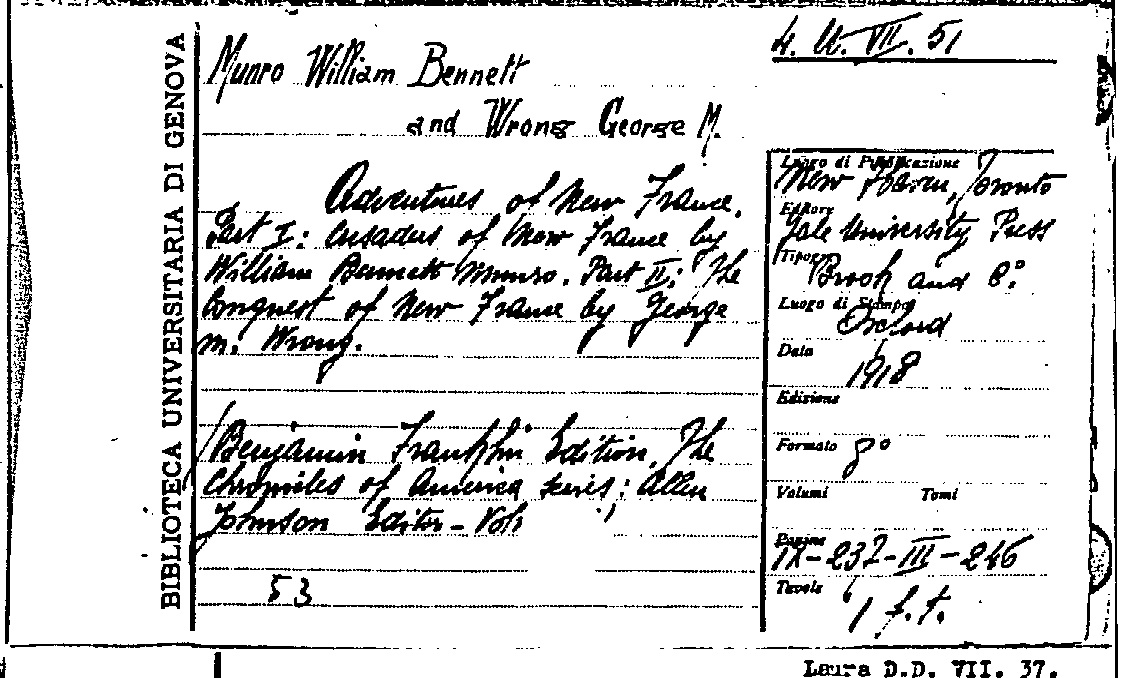 BIBLIOTECA UNIVERSITARIA DI GENOVA
4. U. VII. 51
Munro William Bennett
and Wrong George M.
Adventures of New France.
Part I: Crusaders of New France by
William Bennett Munro. Part II: The
Conquest of New France by George
M. Wrong.
(Benjamin Franklin Edition, The
Chronicles of America series; Allen
Johnson Editor - Vol.
53
Luogo di Pubblicazione
New Haven, Toronto
Editore
Yale University Press
Tipogr.
Brook and C.°
Luogo di Stampa
Oxford
Data
1918
Edizione
Formato 8°
Volumi Tomi
Pagine
IX-237-III-246
Tavole
1 f.t.
Laura D.D. VII. 37.